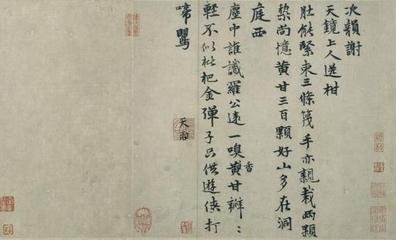 次韻謝
天鏡上人送柑
肚能緊束三條篾手亦親栽兩顆
梨尚憶黃甘三百顆好山多在洞
庭西
塵中誰識羅公遠一嗅黃甘瓣〻
香
輕不似枇杷金彈子只供遊俠打
啼鶯